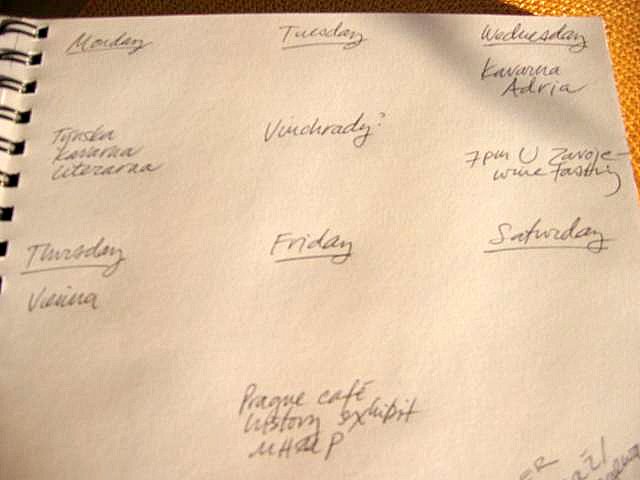 Monday
Tuesday
Wednesday
Kavarna
Adria
Tynska
Kavarna
Literarna
Vinohrady?
7pm U Zavoje-
wine tasting
Thursday
Friday
Saturday
Vienna
Prague café
history exhibit
MHMP
ER